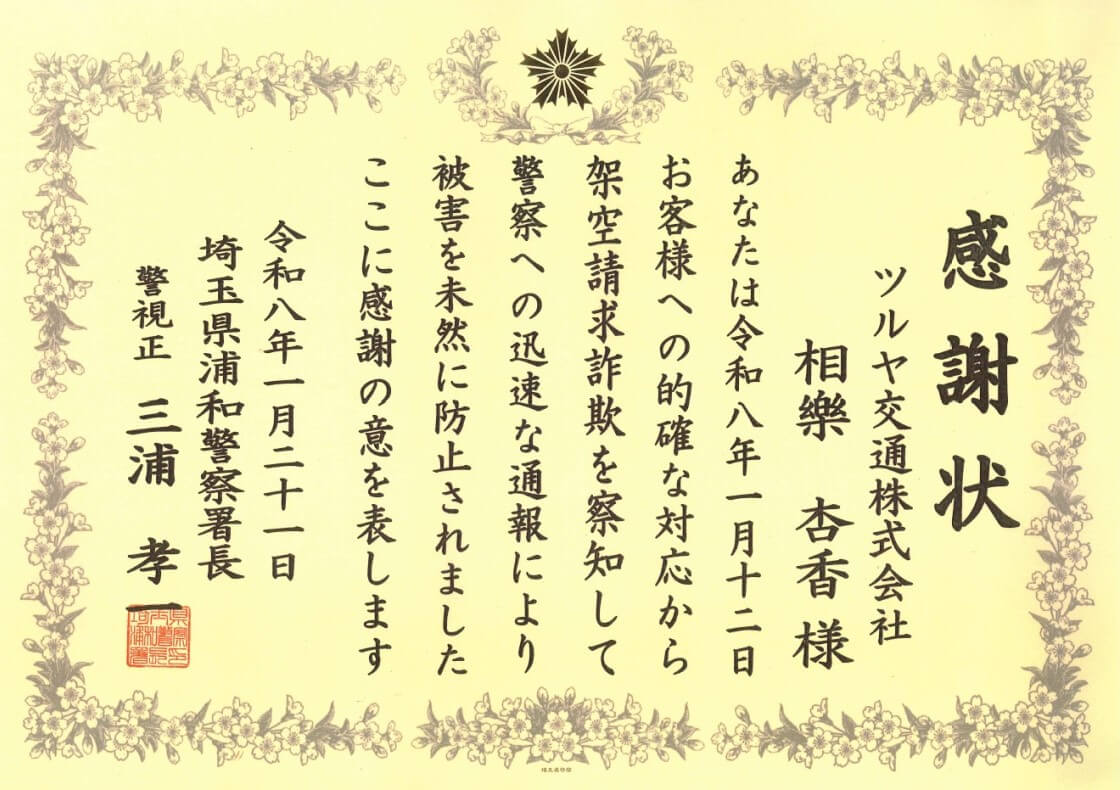 感謝状
ツルヤ交通株式会社
相樂 杏香 様
あなたは令和八年一月十二日
お客様への的確な対応から
架空請求詐欺を察知して
警察への迅速な通報により
被害を未然に防止されました
ここに感謝の意を表します
令和八年一月二十一日
埼玉県浦和警察署長
警視正 三浦 孝一